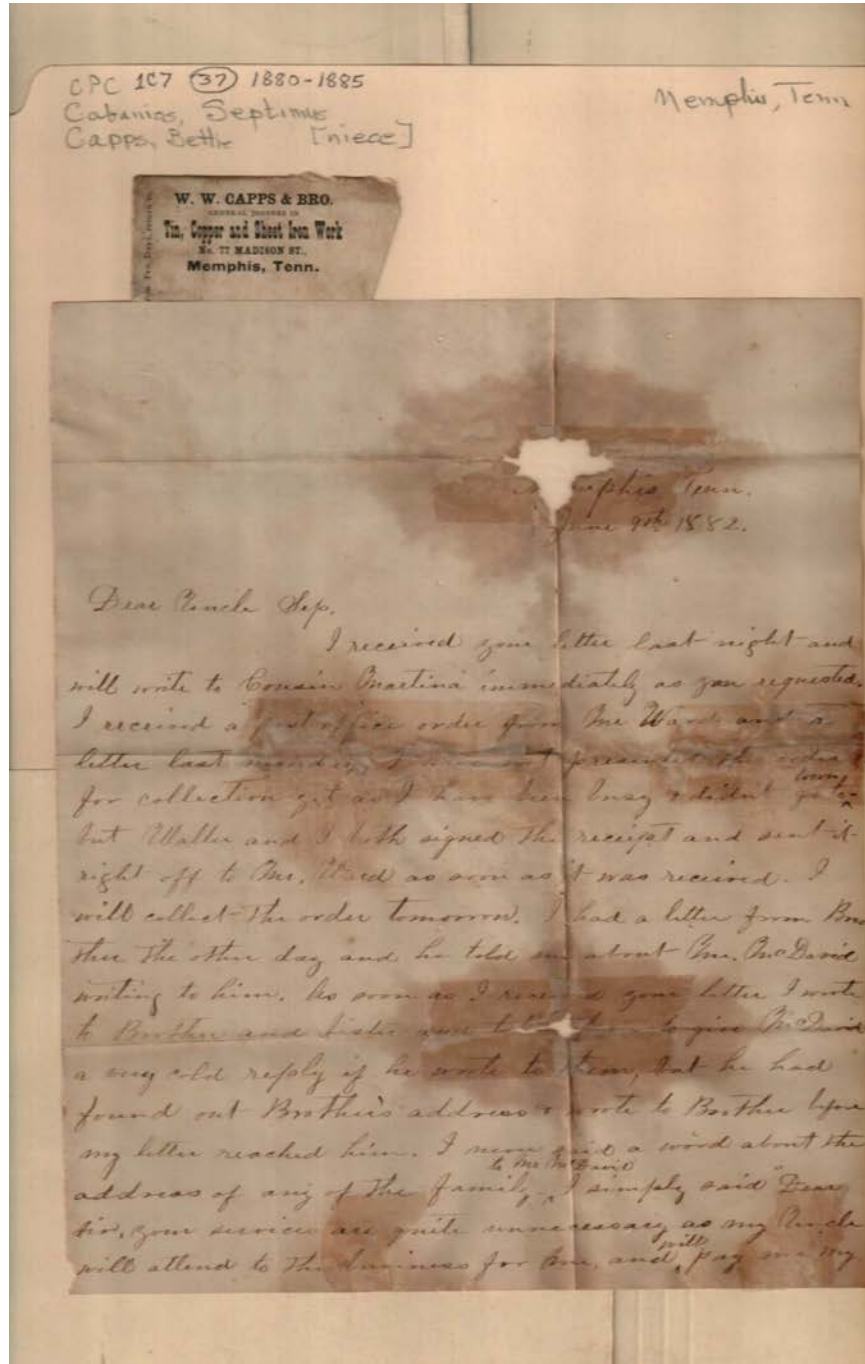 CPC 1C7 (37) 1880-1885
Cabaniss, Septimus
Capps, Bettie [niece]
Memphis, Tenn
W. W. CAPPS & BRO.
GENERAL JOBBERS IN
Tin, Copper and Sheet Iron Work
No. 77 MADISON ST.,
Memphis, Tenn.
Memphis, Tenn.
June 9th 1882.
Dear Uncle Sep.
I received your letter last night and
will write to Cousin Martina immediately as you requested.
I received a post office order from Mr Ward and a
letter last monday, I have not presented the order
for collection yet as I have been busy & didn't go to town
but Walter and I both signed the receipt and sent it
right off to Mr. Ward as soon as it was received. I
will collect the order tomorrow. I had a letter from Bro
ther the other day and he told me about Mr. McDavid
writing to him. As soon as I received your letter I wrote
to Brother and Sister and to give McDavid
a very cold reply if he wrote to them, but he had
found out Brother's address & wrote to Brother before
my letter reached him. I never said a word about the
address of any of the family to Mr McDavid, I simply said "Dear
Sir, your services are quite unnecessary as my Uncle
will attend to the business for me, and will pay me my